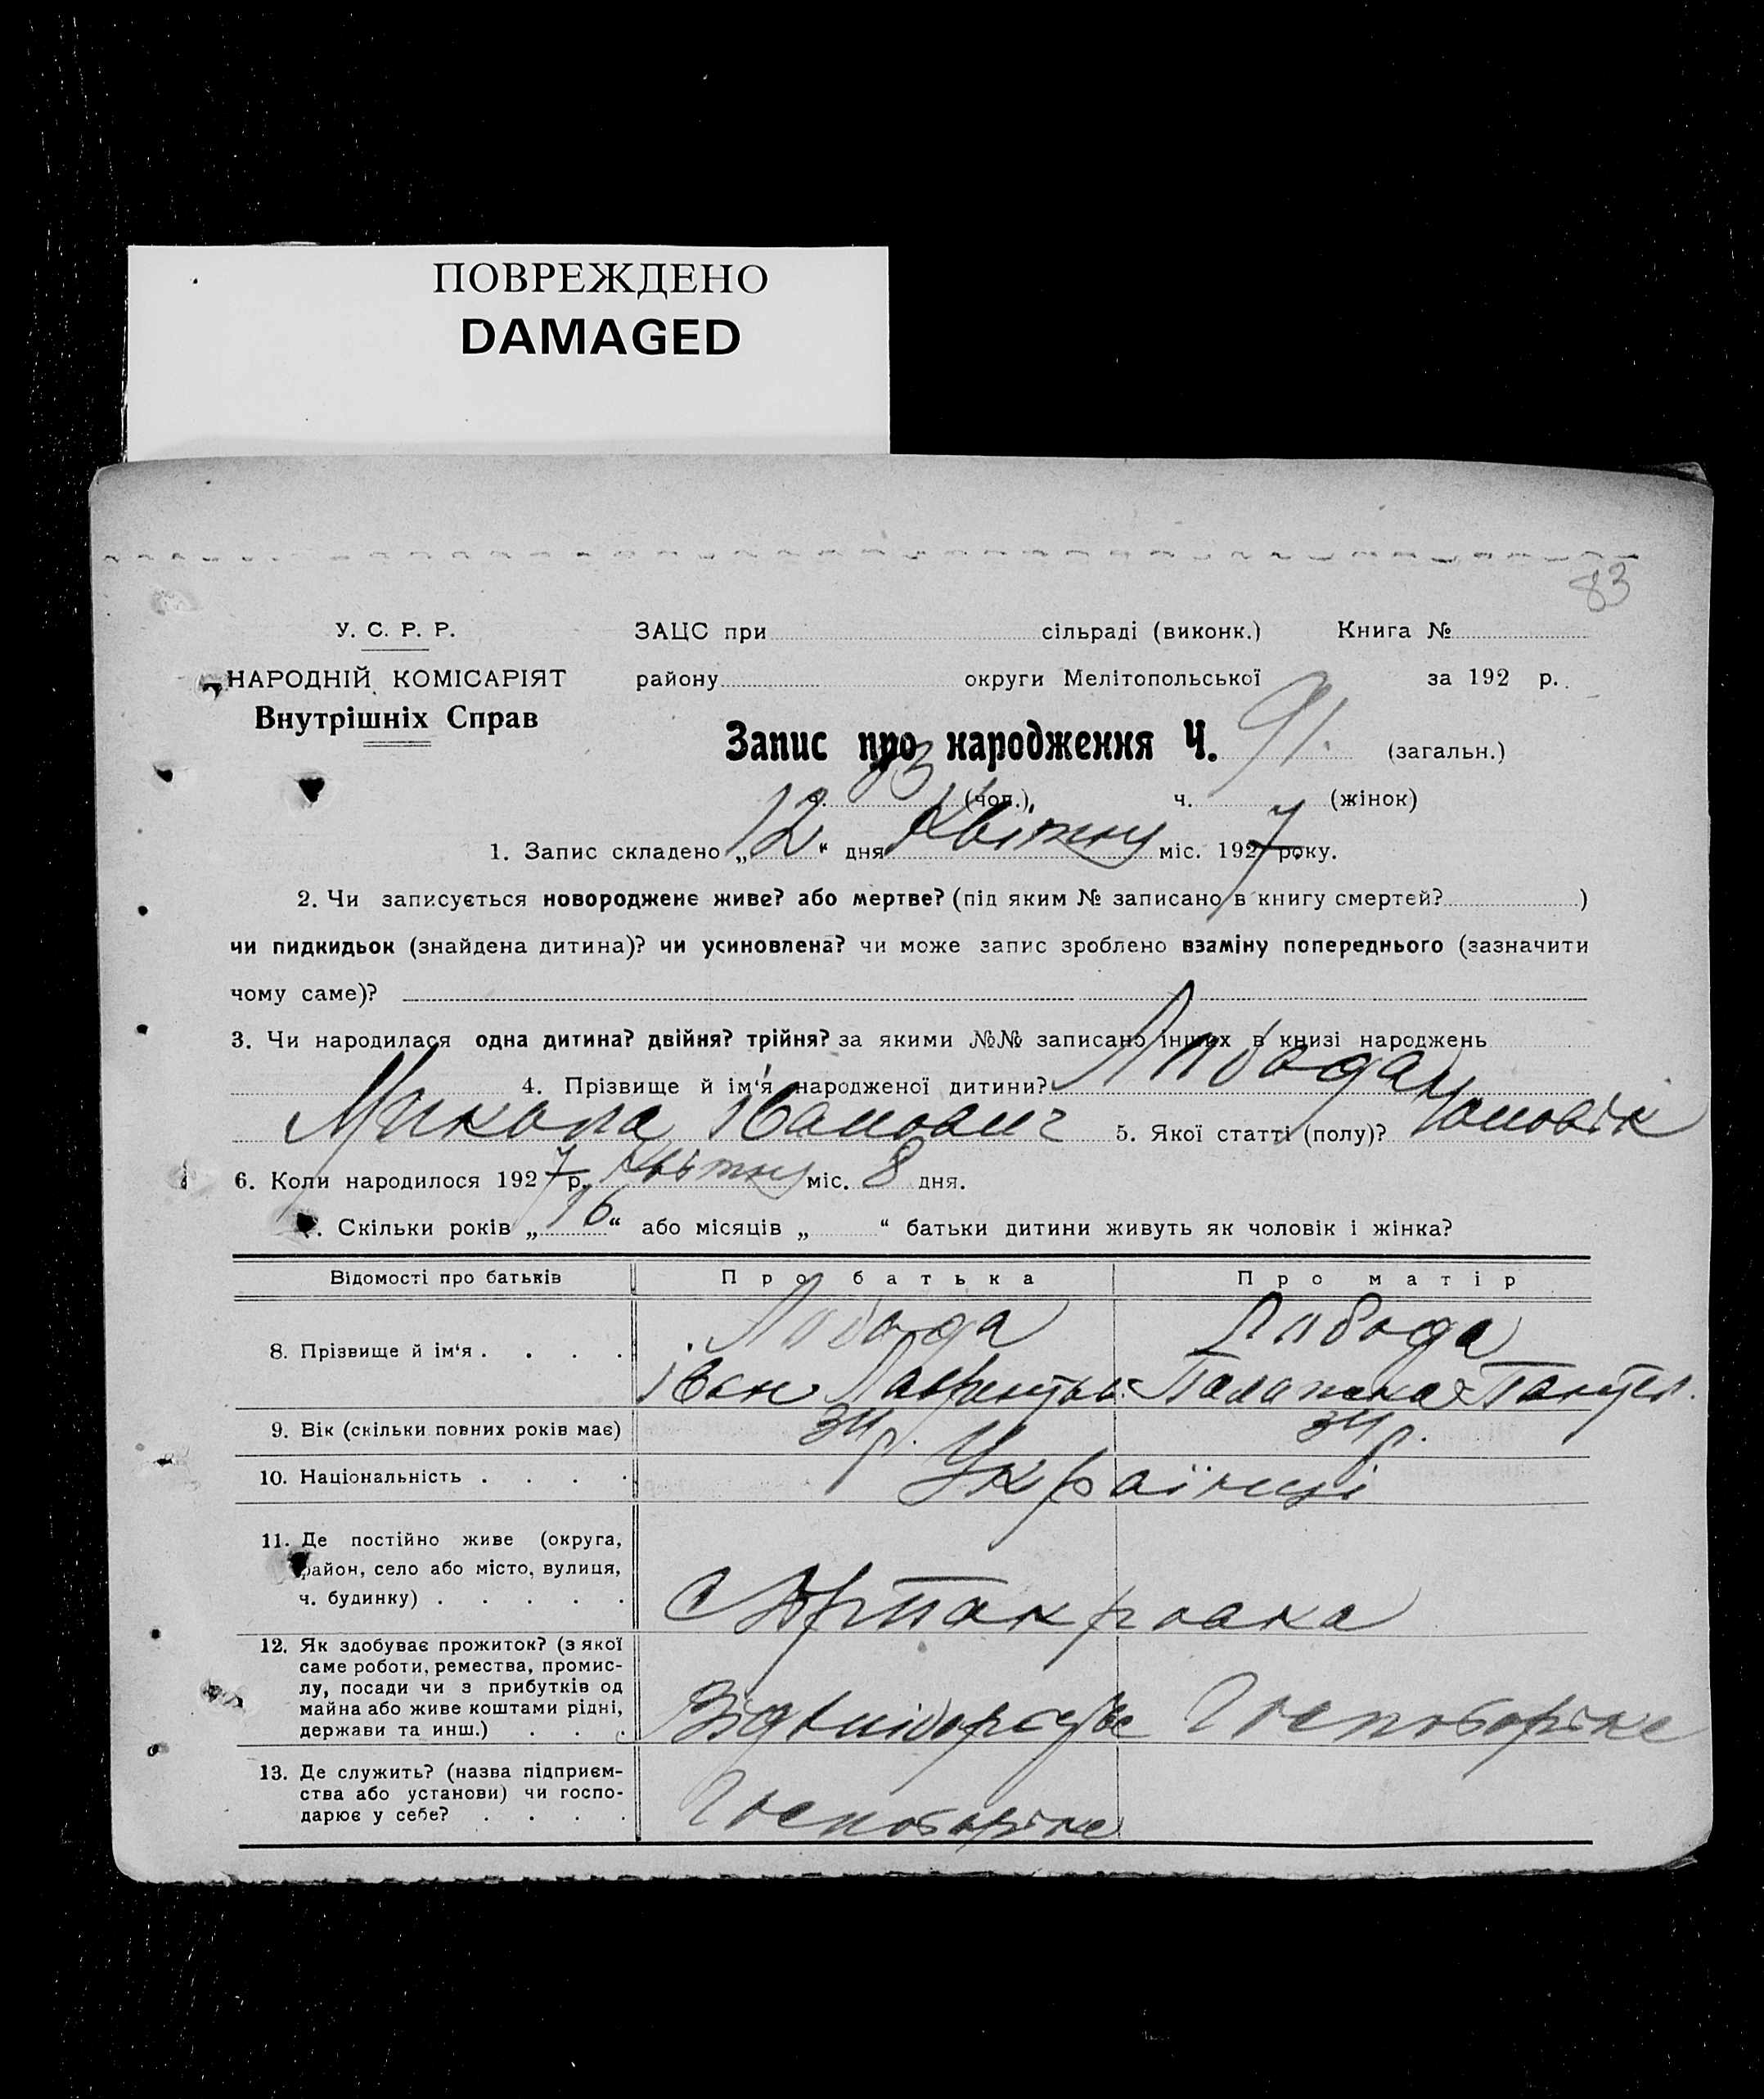 ПОВРЕЖДЕНО
DAMAGED
83
У. С. Р. Р.
НАРОДНІЙ КОМІСАРІЯТ
Внутрішніх Справ
ЗАЦС при сільраді (виконк.) Книга №
району округи Мелітопольської за 192 р.
Запис про народження Ч. 91. (загальн.)
ч. 83 (чол.) ч. (жінок)
1. Запис складено „12“ дня Квітня міс. 1927 року.
2. Чи записується новороджене живе? або мертве? (під яким № записано в книгу смертей? )
чи пидкидьок (знайдена дитина)? чи усиновлена? чи може запис зроблено взаміну попереднього (зазначити
чому саме)?
3. Чи народилася одна дитина? двійня? трійня? за якими №№ записано інших в книзі народжень
4. Прізвище й ім‘я народженої дитини? Лобода
Микола Іванович 5. Якої статті (полу)? Чоловік
6. Коли народилося 1927 р. Квітня міс. 8 дня.
7. Скільки років „16“ або місяців „ “ батьки дитини живуть як чоловік і жінка?
Відомості про батьків Про батька Про матір
8. Прізвище й ім‘я . . . . Лобода Лобода
Іван Лаврентьев. Палажка Пантел.
9. Вік (скільки повних років має) 34 р. 34 р.
10. Національність . . . . Українці
11. Де постійно живе (округа,
район, село або місто, вулиця,
ч. будинку) . . . . . С
12. Як здобуває прожиток? (з якої
саме роботи, ремества, промис-
лу, посади чи з прибутків од
майна або живе коштами рідні,
держави та инш.) . . .
13. Де служить? (назва підприєм-
ства або установи) чи госпо-
дарює у себе? . . . .